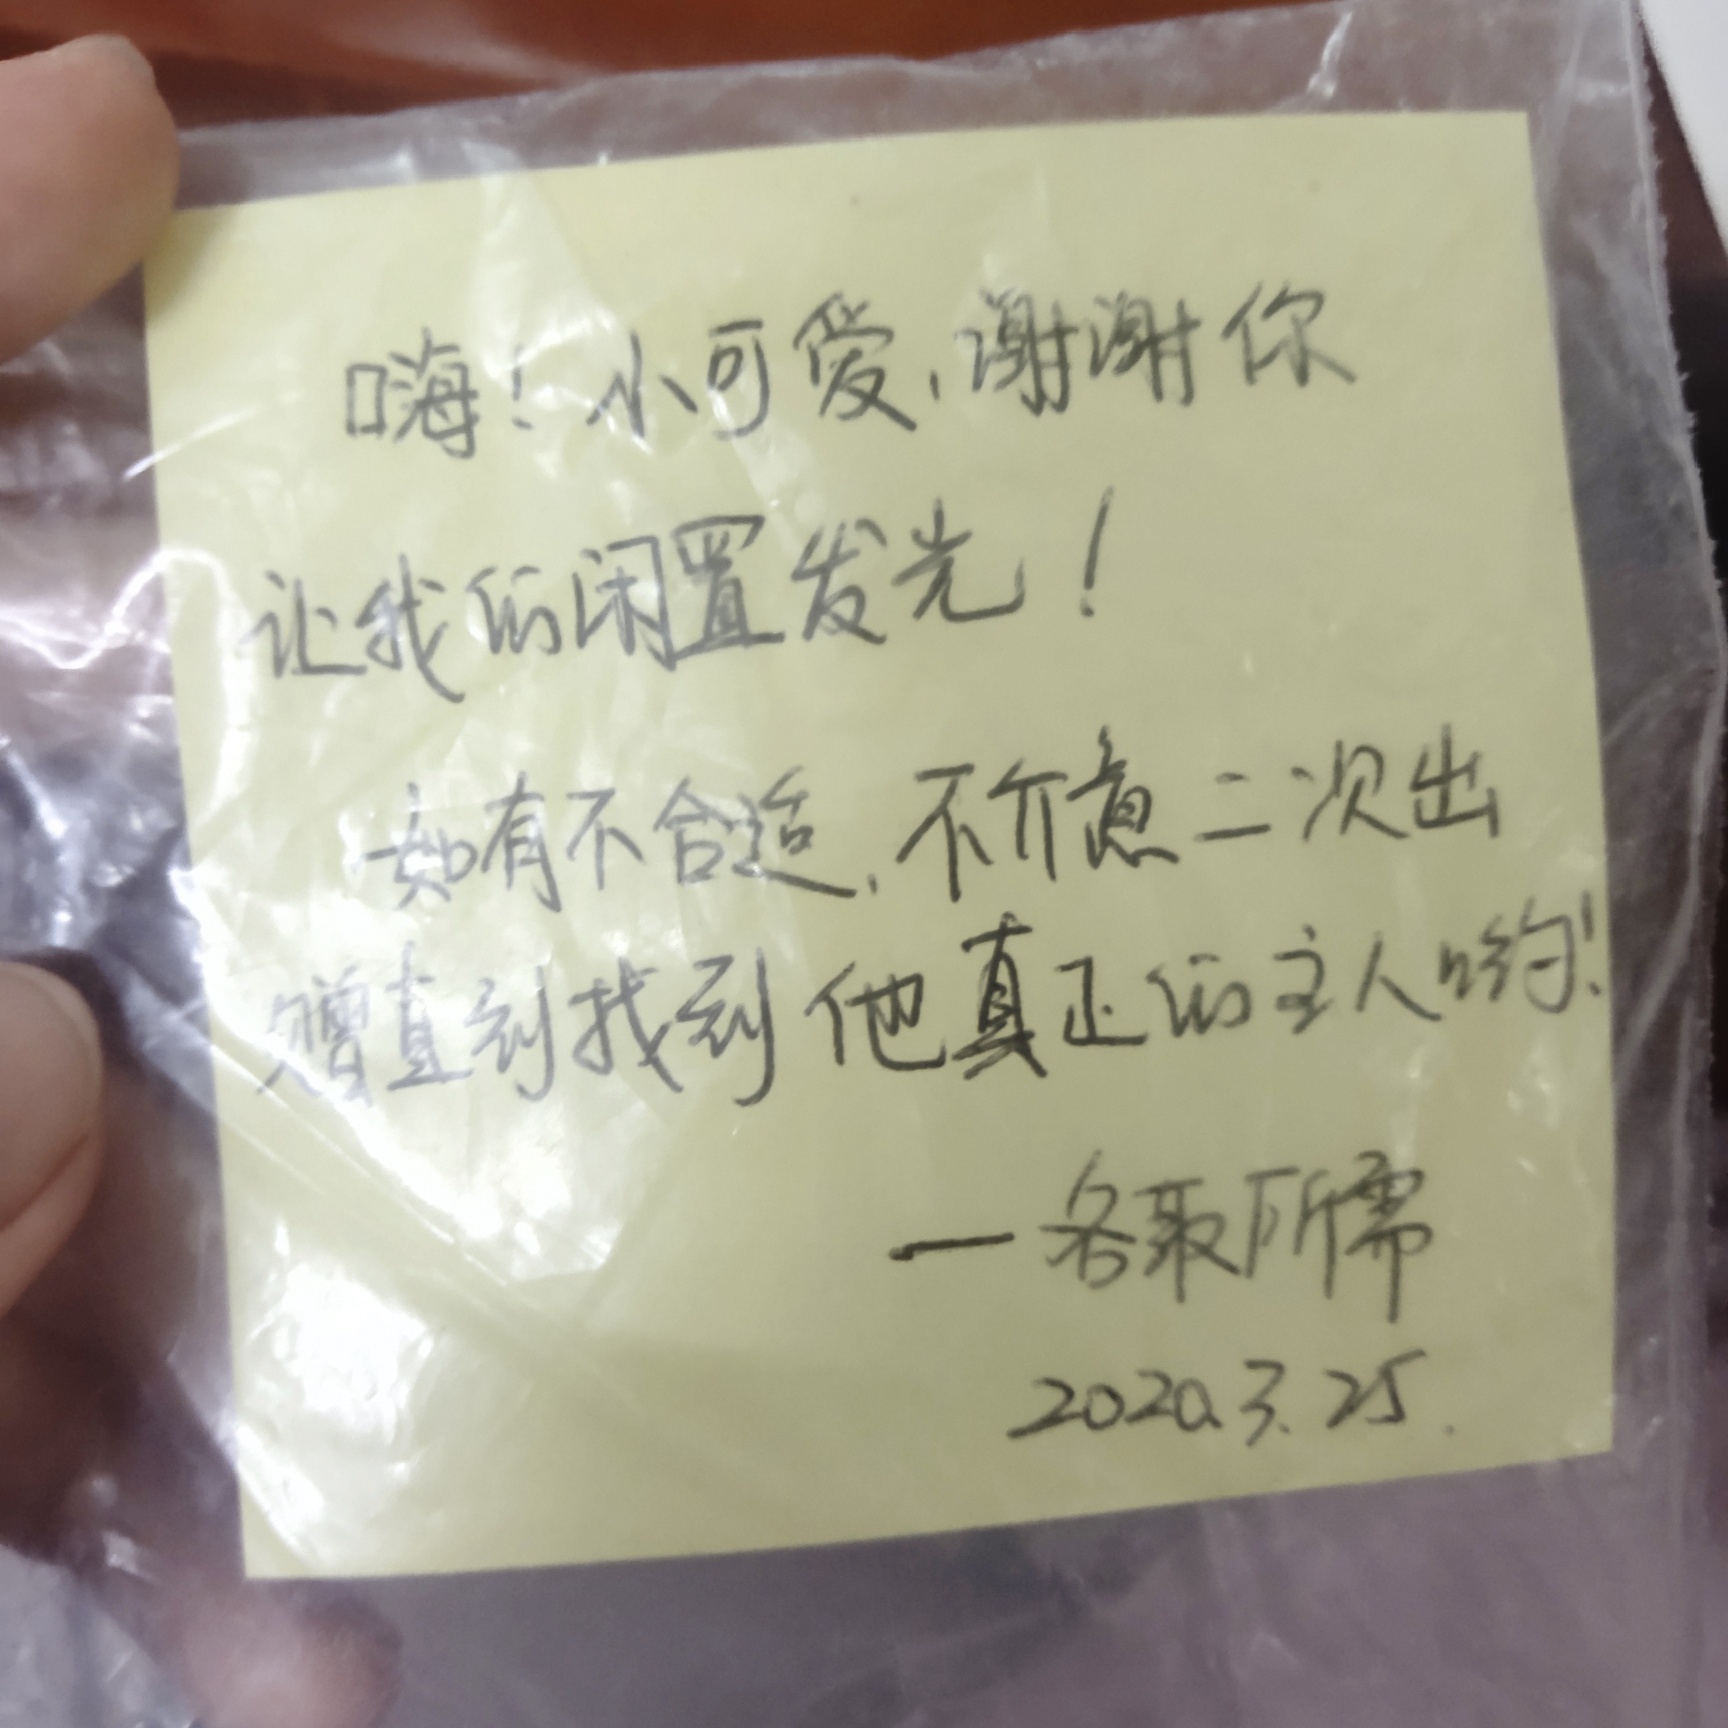 嗨！小可爱，谢谢你
让我的闲置发光！
如有不合适，不介意二次出
赠直到找到他真正的主人哟！
—各取所需
2020.3.25.